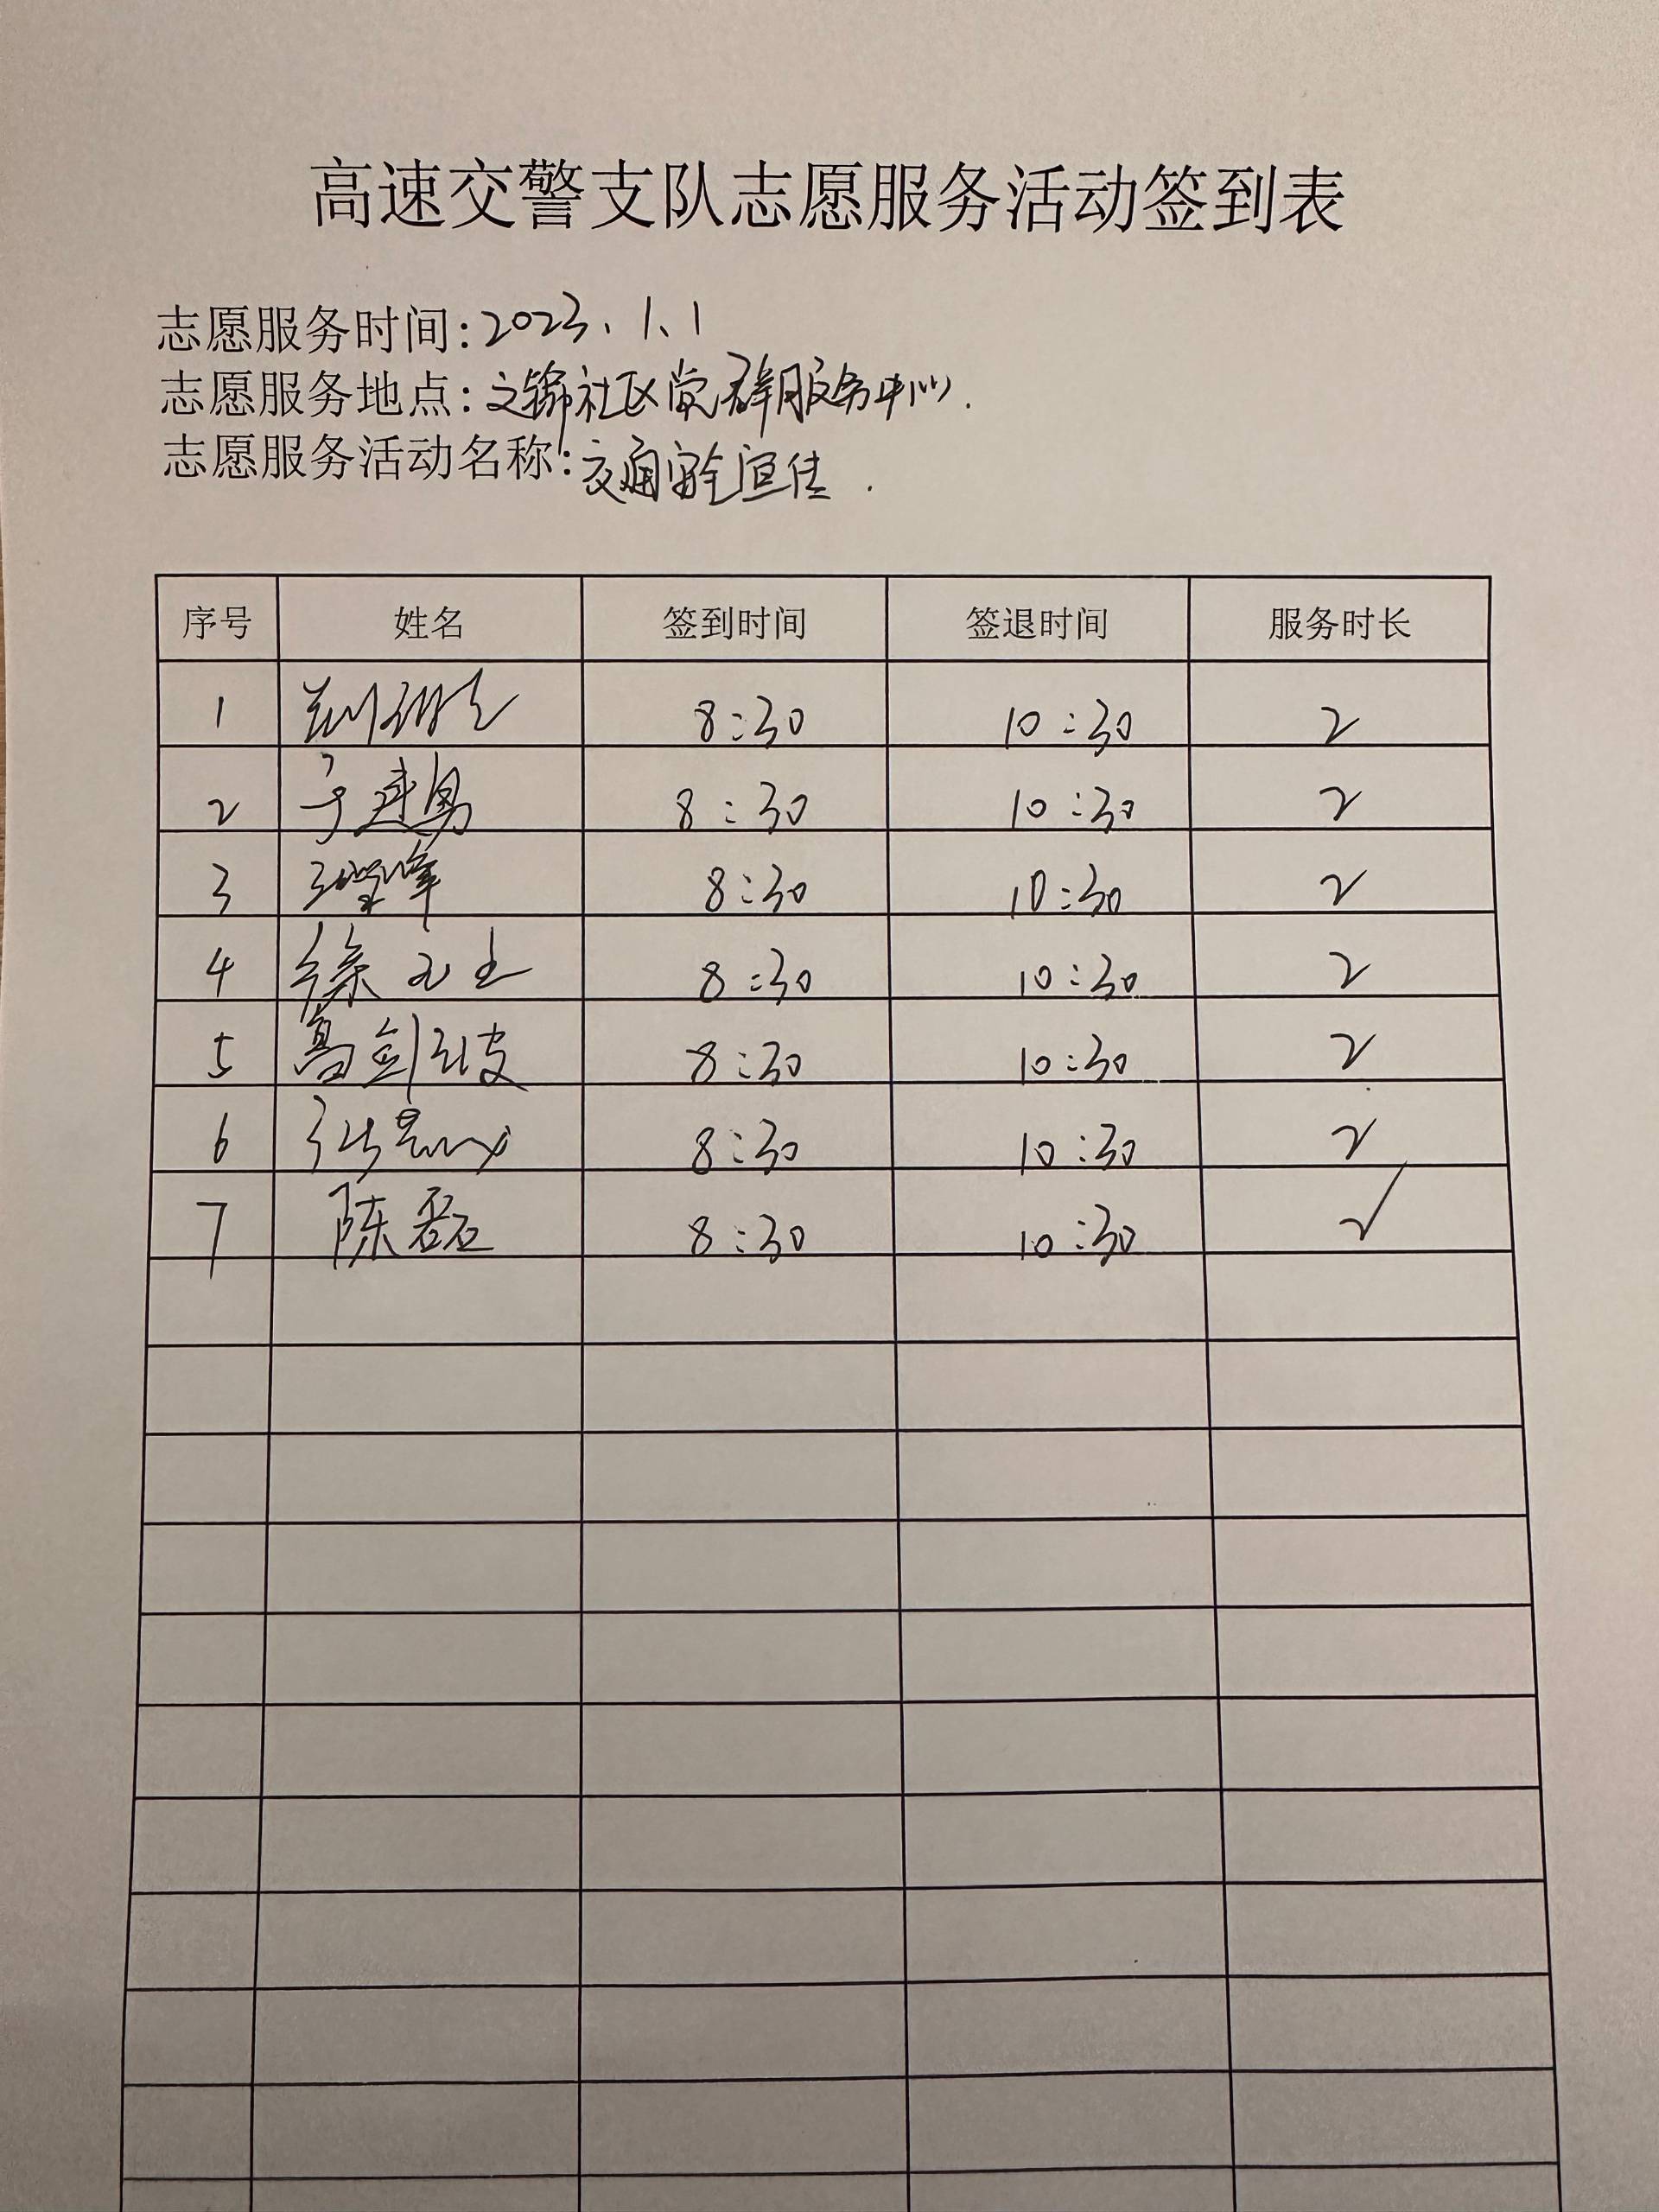 高速交警支队志愿服务活动签到表
志愿服务时间:2023、1、1
志愿服务地点:文锦社区党群服务中心.
志愿服务活动名称:交通安全宣传.
序号 姓名 签到时间 签退时间 服务时长
1 8:30 10:30 2
2 于建勇 8:30 10:30 2
3 8:30 10:30 2
4 徐 8:30 10:30 2
5 高剑波 8:30 10:30 2
6 8:30 10:30 2
7 陈磊 8:30 10:30 √